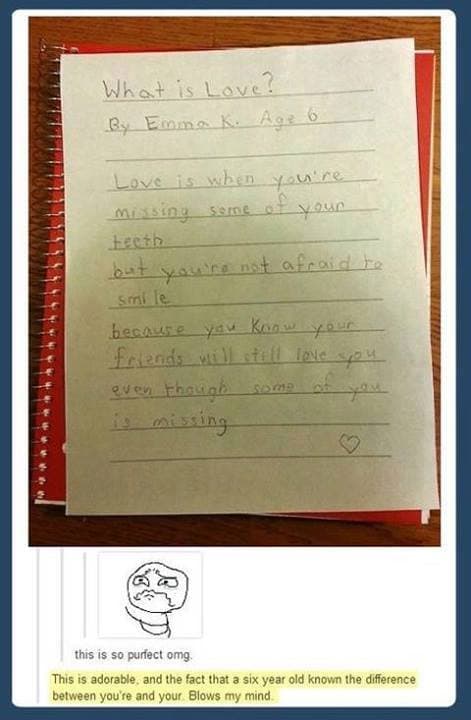 What is Love?
By Emma K. Age 6
Love is when you're
missing some of your
teeth
but you're not afraid to
smile
because you know your
friends will still love you
even though some of you
is missing
this is so purfect omg.
This is adorable, and the fact that a six year old known the difference
between you're and your. Blows my mind.